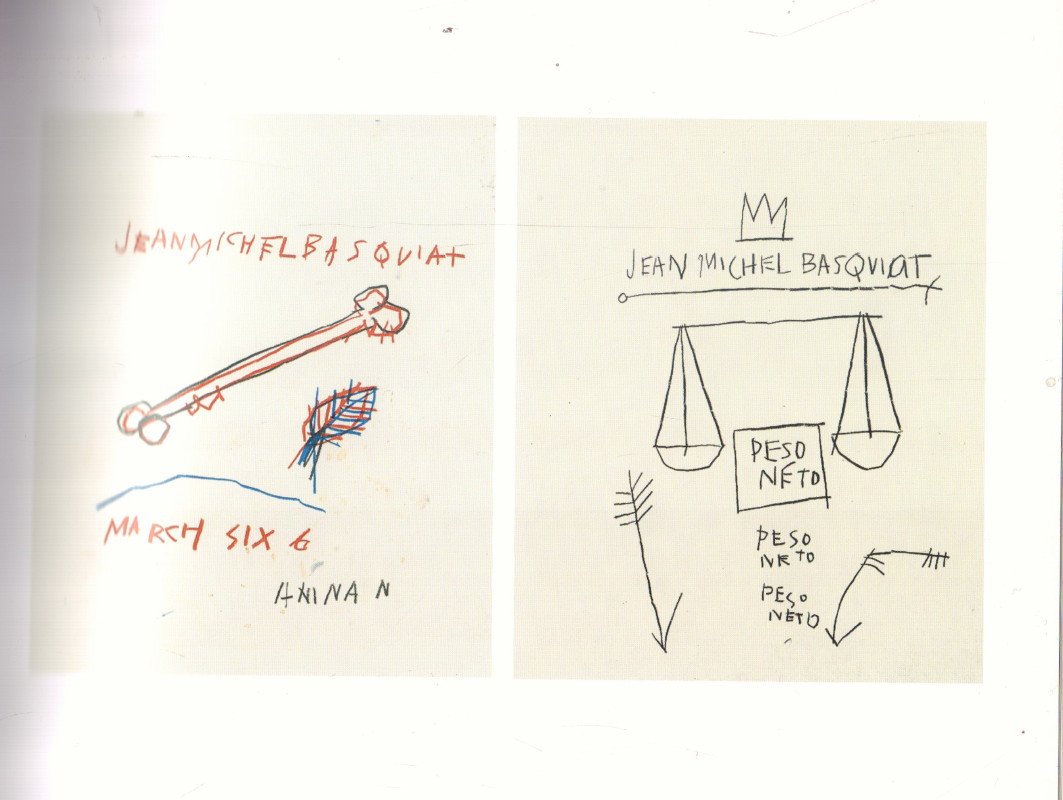 JEAN MICHEL BASQUIAT
MARCH SIX 6
ANINA N
JEAN MICHEL BASQUIAT
PESO
NETO
PESO
NETO
PESO
NETO